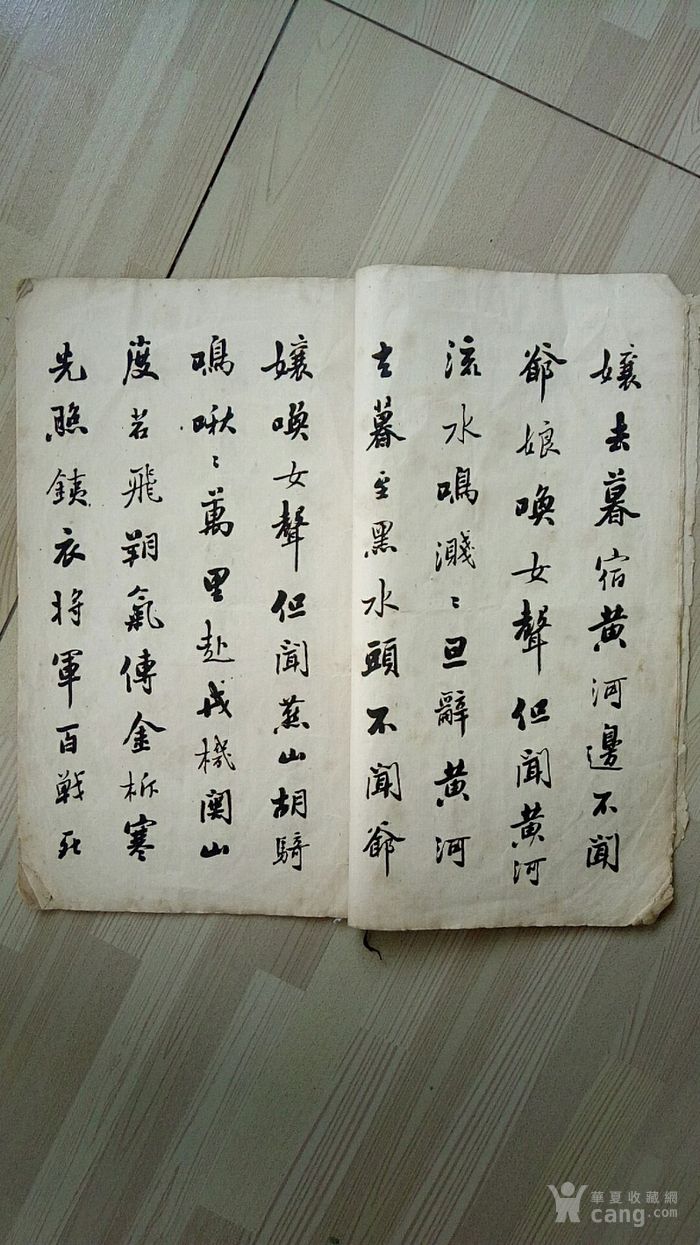 孃去暮宿黄河邊不聞
爺娘喚女聲但聞黄河
流水鳴濺〻旦辭黄河
去暮至黑水頭不聞爺
孃喚女聲但聞燕山胡騎
鳴啾〻萬里赴戎機関山
度若飛朔氣傳金柝寒
先照銕衣将軍百戦死
華夏收藏網
cang.com